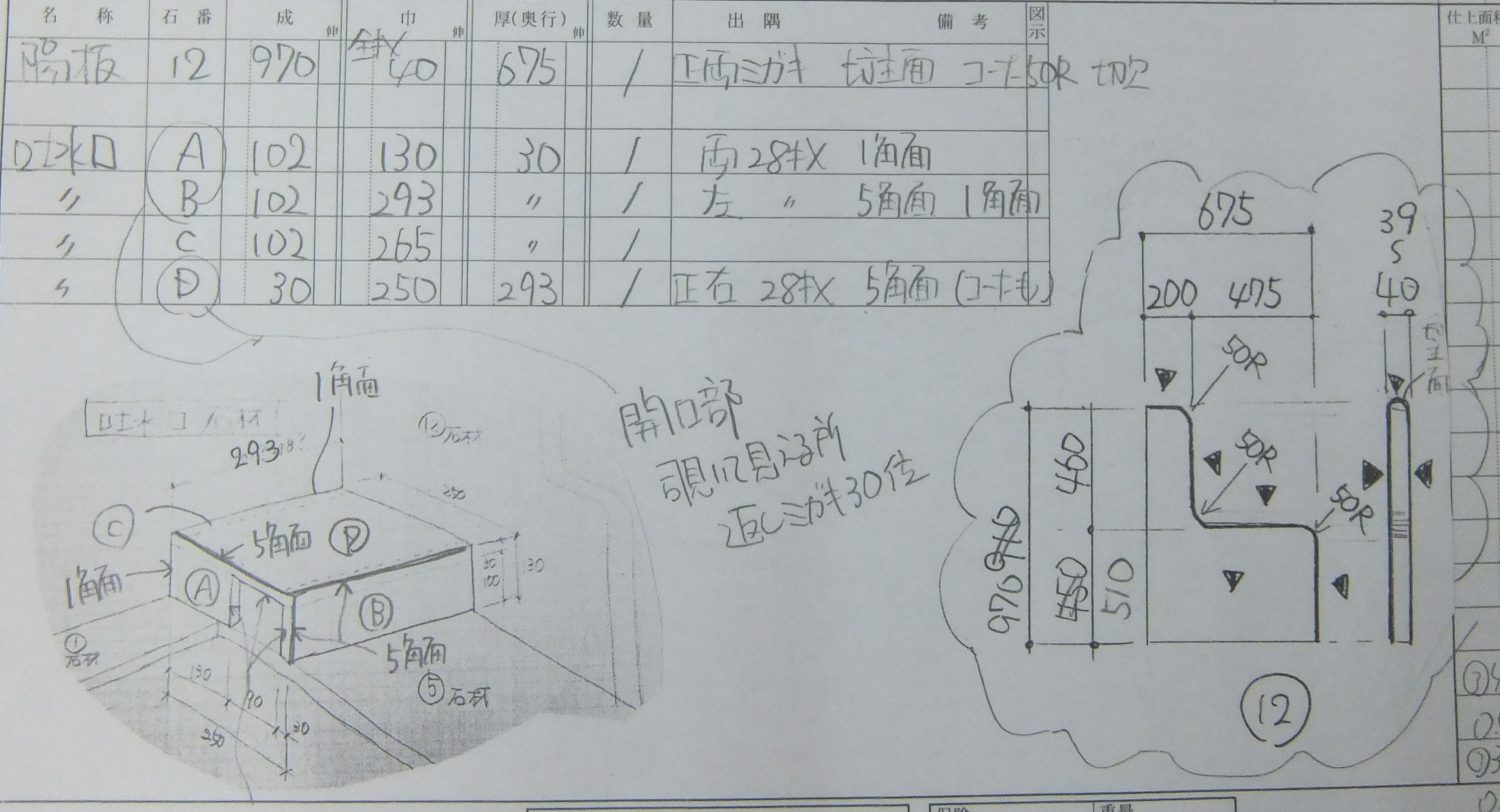 名 称 石 番 成 巾 厚(奥行) 数 量 出 隅 備 考 図示
伸 伸 伸
仕上面積
M²
腸板 12 970 40 675 1 正両ミガキ 坊主面 コーナー50R 切欠
吐水口 A 102 130 30 1 両28キメ 1角面
〃 B 102 293 〃 1 左 〃 5角面 1角面
〃 C 102 265 〃 1
〃 D 30 250 293 1 正右 28キメ 5角面 (コーナーも)
675 39
S
200 475 40
坊主面
50R
1角面
吐水口石材
293
⑫石材
250
開口部
覗いて見える所
返しミガキ30位
C
5角面 D
1角面 A
B
5角面
①石材
⑤石材
100 30
130
90
30
250
50R
50R
460
970 910
450 510
⑫